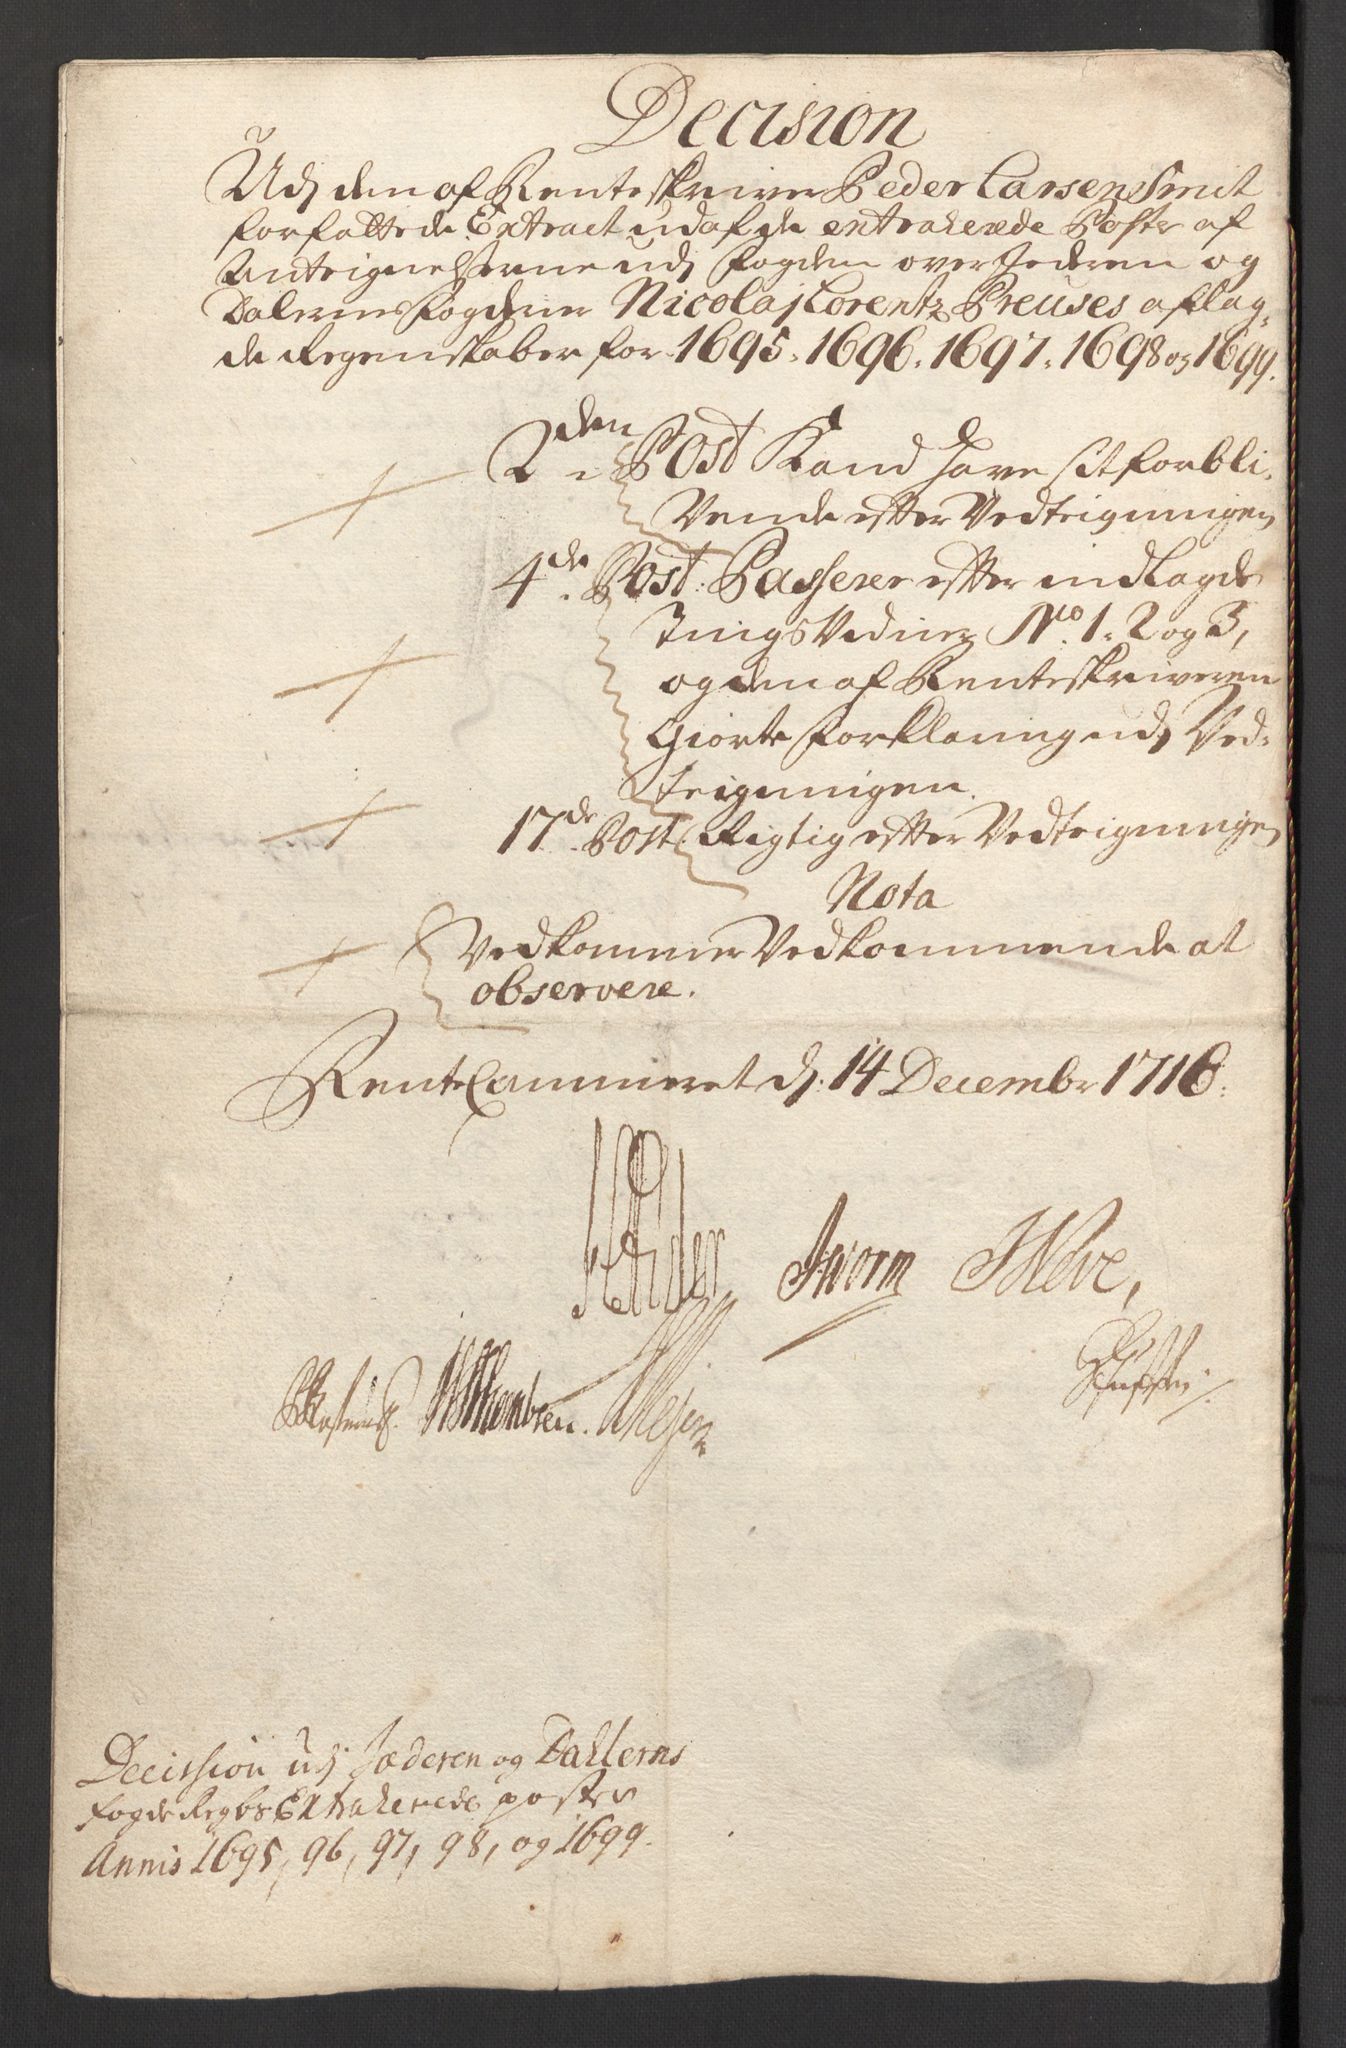 Decision
Udj den af Renteskriver Peder Larsen Smit
forfattede Extract udaf de extraherede Poster af
Anteignelserne udj fogden over Jederen og
Dalernes fogderie Nicolaj Lorentz Preuses aflag-
de Regenskaber for 1695. 1696. 1697. 1698 og 1699.
2den Post Kand have sit forbli-
vende efter Vedteigningen
4de Post. Passerer efter indlagde
Tingsvidner No. 1. 2 og 3,
og den af Renteskriveren
Giorte forklaring udj Ved-
teigningen.
17de Post. Rigtig efter Vedteigningen
Nota
Vedkommer Vedkommende at
observere.
RenteCammeret dj. 14 Decembr 1716.
JWorm
Decission udj Jæderen og Dahlerns
fogde Regbs Extraherede poster
Annis 1695, 96, 97, 98, og 1699.